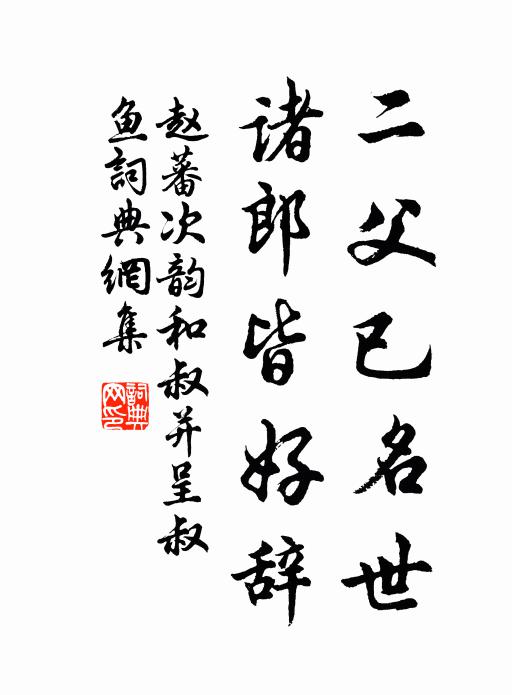 二父已名世
诸郎皆好辞
赵蕃次韵和叔并呈叔
鱼詞典網集
詞典
网印